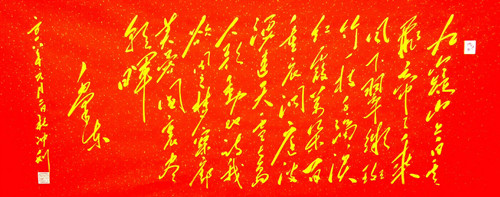 九嶷山上白云
飞帝子乘
风下翠微斑
竹一枝千滴泪
红霞万朵百
重衣洞庭波
涌连天雪长岛
人歌动地诗我
欲因之梦寥廓
芙蓉国里尽
朝晖
毛泽东